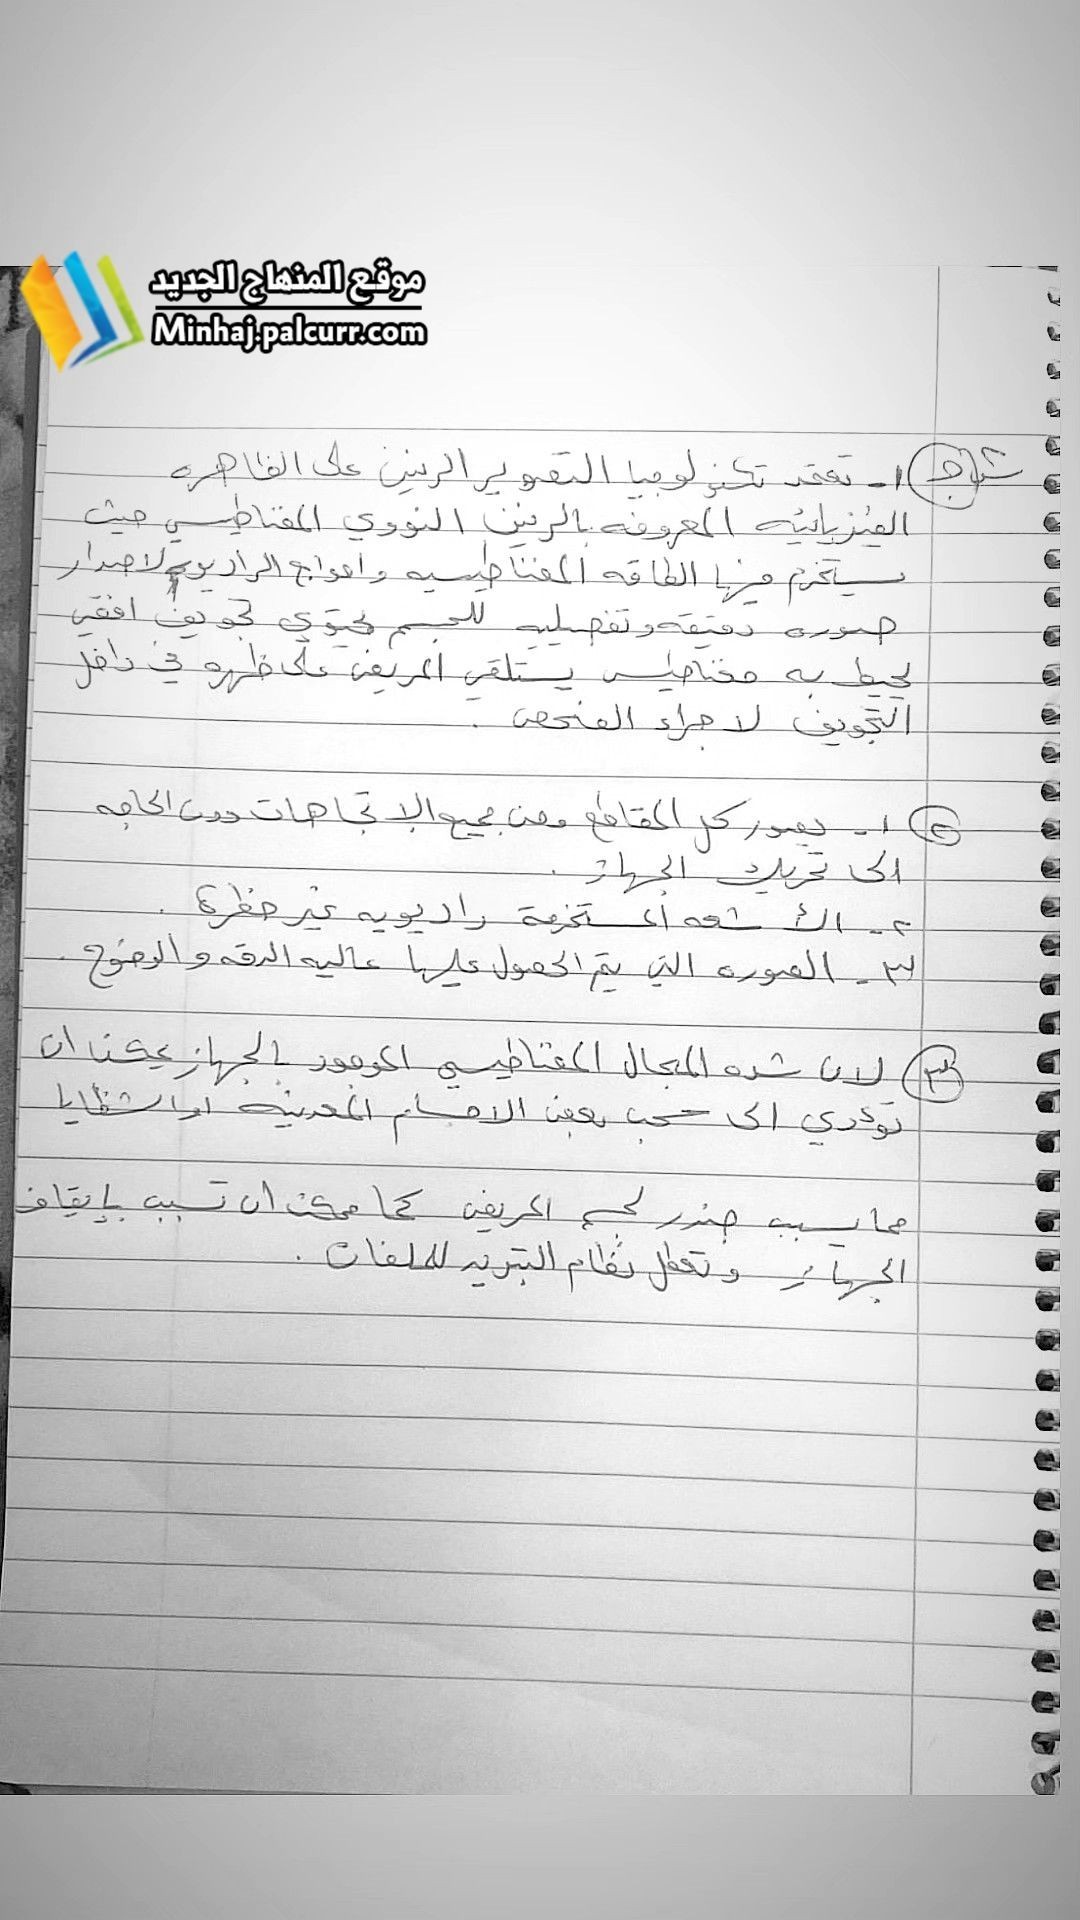 موقع المنهاج الجديد
Minhaj.palcurr.com
ج ١- تعتمد تكنولوجيا التصوير الرنين على الظاهره
الفيزيائيه المعروفه بالرنين النووي المغناطيسي حيث
يستخدم فيها الطاقه المغناطيسيه وامواج الراديو لاصدار
صوره دقيقه وتفصيليه للجسم يحتوي تجويف افقي
يحيط به مغناطيس يستلقي المريض على ظهره في داخل
التجويف لاجراء الفحص .
٢ ١- يصور كل المقاطع ومن جميع الاتجاهات دون الحاجه
الى تحريك الجهاز .
٢- الأشعه المستخدمة راديويه غير خطرة .
٣- الصوره التي يتم الحصول عليها عاليه الدقه والوضوح .
٣ لان شده المجال المغناطيسي الموجود بالجهاز يمكنا ان
تؤدي الى سحب بعض الاجسام المعدنيه او الشظايا
مما يسبب ضرر لجسم المريض كما ممكن ان تسبب بإيقاف
الجهاز وتعطل نظام التبريد للملفات .